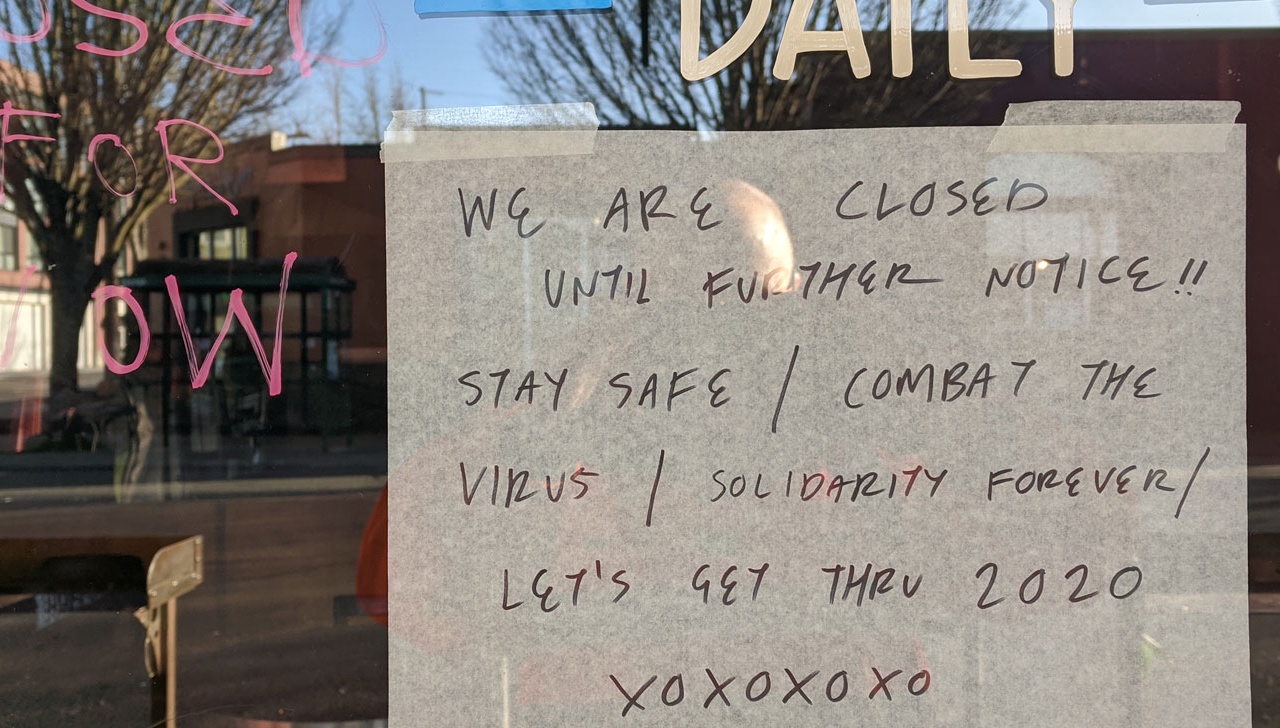 DAILY
FOR
WE ARE CLOSED
UNTIL FURTHER NOTICE!!
STAY SAFE / COMBAT THE
VIRUS / SOLIDARITY FOREVER/
LET'S GET THRU 2020
XOXOXOXO